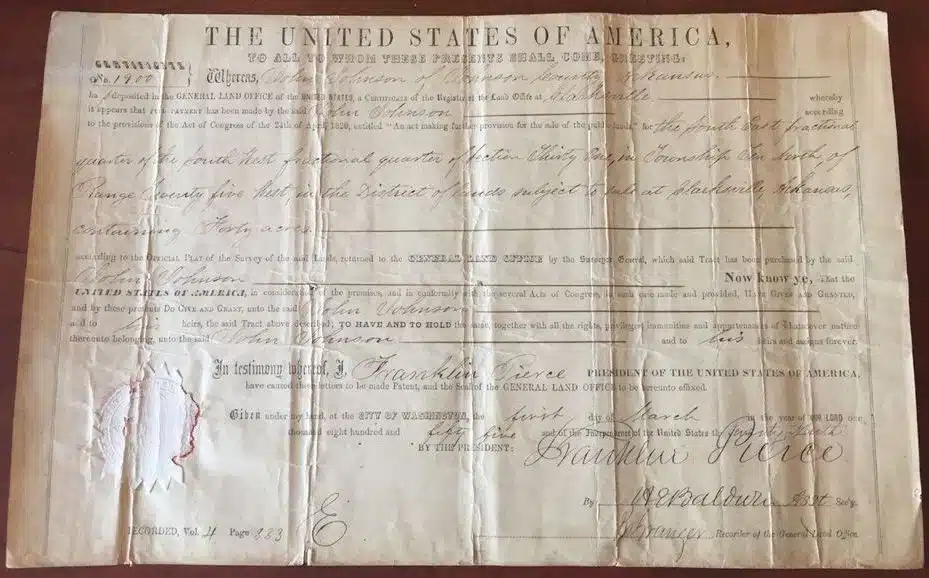 THE UNITED STATES OF AMERICA,
TO ALL TO WHOM THESE PRESENTS SHALL COME, GREETING:
CERTIFICATE
No. 1900
Whereas, John Johnson of Johnson County Arkansas
ha deposited in the GENERAL LAND OFFICE of the UNITED STATES, a Certificate of the Register of the Land Office at Clarksville whereby
it appears that FULL PAYMENT has been made by the said John Johnson according
to the provisions of the Act of Congress of the 24th of April, 1820, entitled "An act making further provision for the sale of the public lands," for the South East fractional
quarter of the South West fractional quarter of Section Thirty One, in Township Ten North, of
Range Twenty five West, in the District of Lands subject to sale at Clarksville, Arkansas,
containing Forty acres
according to the OFFICIAL PLAT of the Survey of the said Lands, returned to the GENERAL LAND OFFICE by the Surveyor General, which said Tract has been purchased by the said
John Johnson Now know ye, That the
UNITED STATES OF AMERICA, in consideration of the premises, and in conformity with the several Acts of Congress, in such case made and provided, HAVE GIVEN AND GRANTED,
and by these presents DO GIVE AND GRANT, unto the said John Johnson
and to his heirs, the said Tract above described; TO HAVE AND TO HOLD the same, together with all the rights, privileges, immunities and appurtenances of whatsoever nature
thereunto belonging, unto the said John Johnson and to his heirs and assigns forever.
In testimony whereof, I, Franklin Pierce PRESIDENT OF THE UNITED STATES OF AMERICA,
have caused these letters to be made Patent, and the Seal of the GENERAL LAND OFFICE to be hereunto affixed.
Given under my hand, at the CITY OF WASHINGTON, the first day of March in the year of OUR LORD one
thousand eight hundred and fifty five and of the Independence of the United States the
BY THE PRESIDENT: Franklin Pierce
By H E Baldwin Asst Sec'y.
RECORDED, Vol. 4 Page E Granger Recorder of the General Land Office.